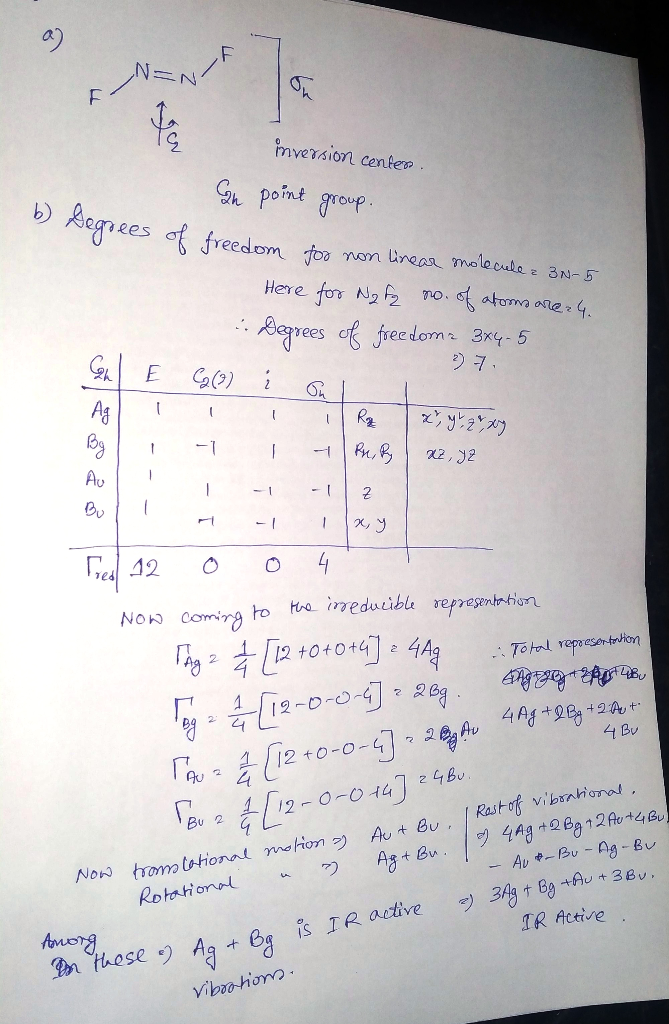 a)
F N=N F ] σh
C2
inversion center.
C2h point group.
b) Degrees of freedom for non linear molecule = 3N-5
Here for N2F2 no. of atoms are = 4.
∴ Degrees of freedom = 3x4-5
=) 7.
C2h | E C2(z) i σh
Ag 1 1 1 1 Rz x², y², z², xy
Bg 1 -1 1 -1 Rx, Ry xz, yz
Au 1 1 -1 -1 z
Bu 1 -1 -1 1 x, y
Γred 12 0 0 4
NOW coming to the irreducible representation
ΓAg = 1/4 [12+0+0+4] = 4Ag
∴ Total representation
ΓBg = 1/4 [12-0-0-4] = 2Bg.
4Ag + 2Bg + 2Au +
4Bu
ΓAu = 1/4 [12+0-0-4] = 2 Au
ΓBu = 1/4 [12-0-0+4] = 4Bu.
Now translational motion =) Au + Bu.
Rotational " =) Ag + Bu.
Rest of vibrational.
=) 4Ag + 2Bg + 2Au + 4Bu
- Au - Bu - Ag - Bu
=) 3Ag + Bg + Au + 3Bu.
IR Active.
Among
these =) Ag + Bg is IR active
vibrations.